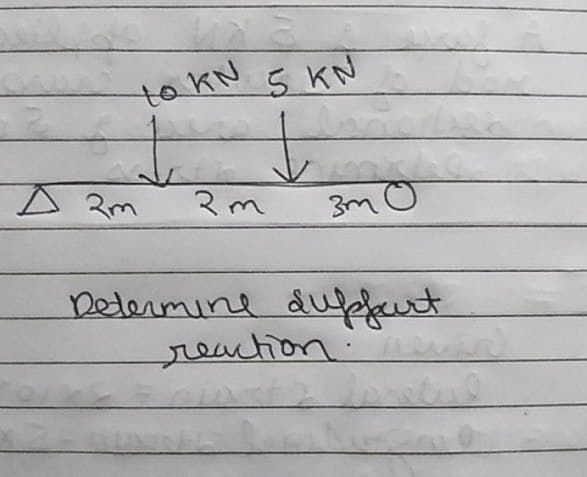 10 KN 5 KN
2m 2m 3m
Determine support
reaction.